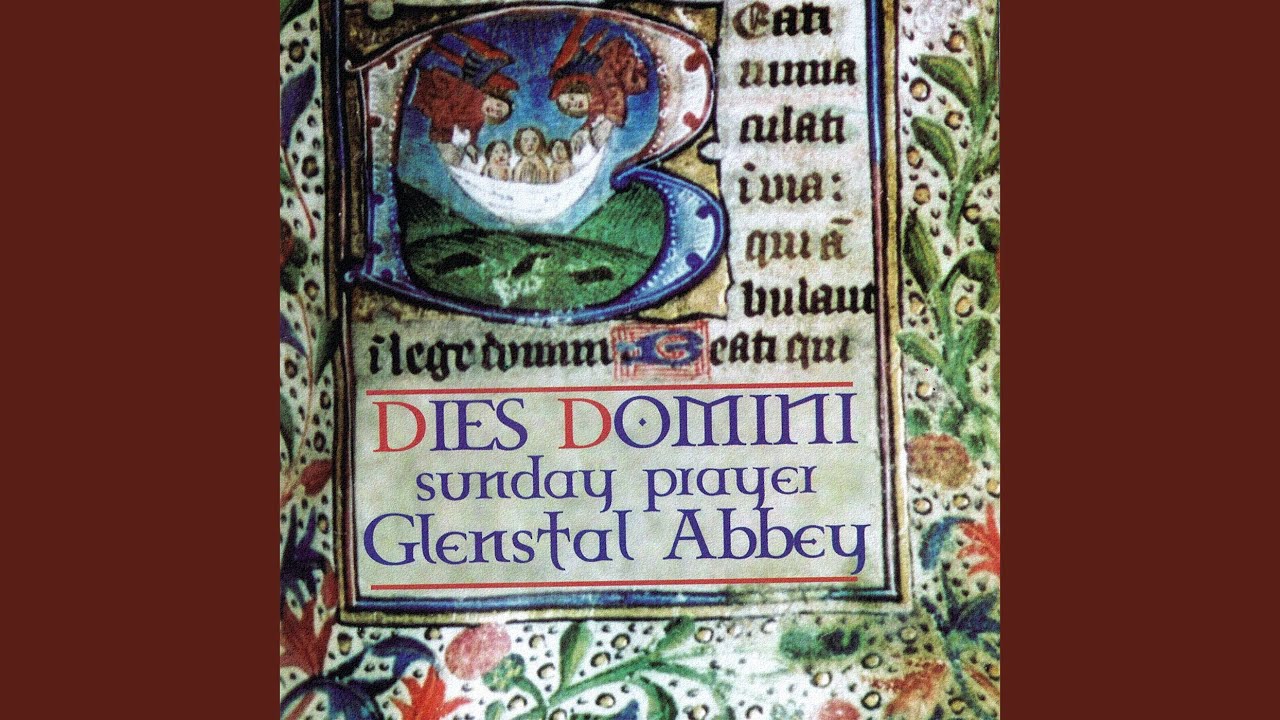 Beati
imma
culati
i via:
qui ā
bulant
i lege domini Beati qui
DIES DOMINI
sunday prayer
Glenstal Abbey